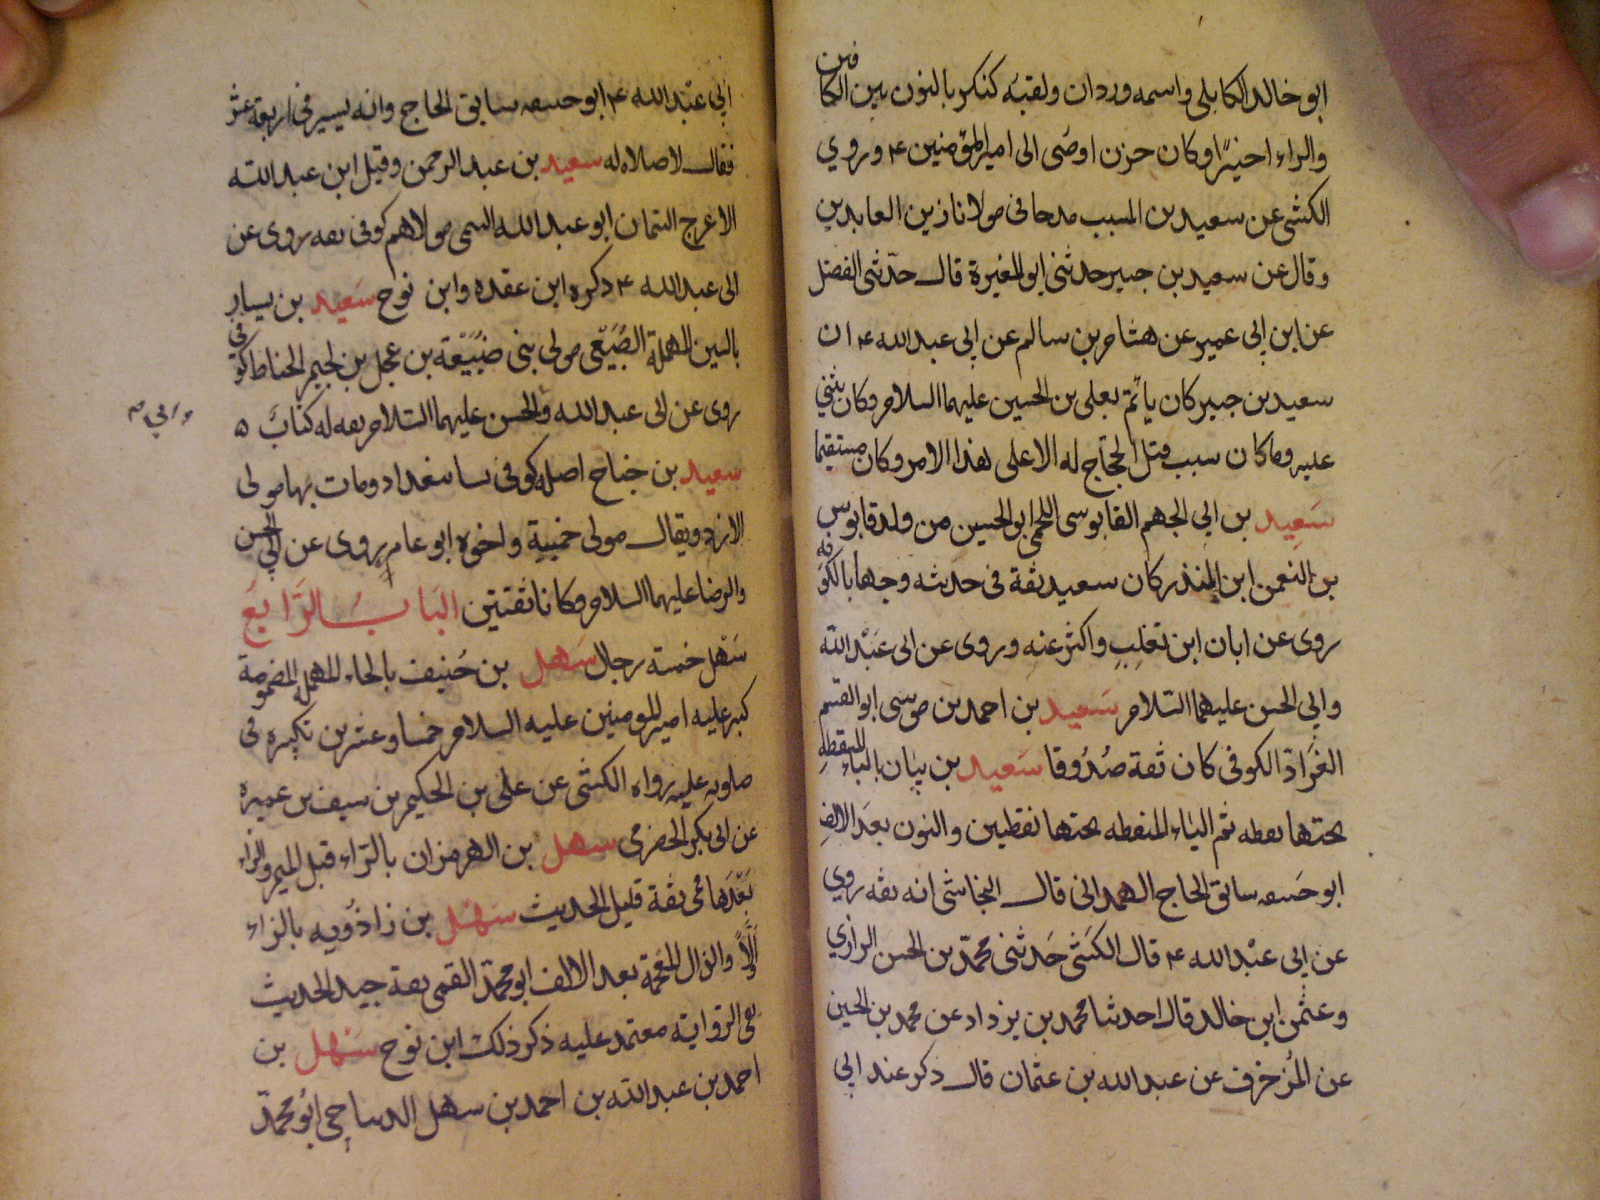 ابو خالد الكابلى واسمه وردان ولقبه كنكر بالنون بين الكافين
والراء اخيرًا وكان حزن اوصى الى امير المؤمنين ۴ وروي
الكشى عن سعيد بن المسيب مدحا فى مولانا زين العابدين
وقال عن سعيد بن جبير حدثنى ابو المغيرة قال حدّثنى الفضل
عن ابن ابى عمير عن هشام بن سالم عن ابى عبد الله ۴ ان
سعيد بن جبير كان يأتم بعلى بن الحسين عليهما السلام وكان يثنى
عليه وما كان سبب قتل الحجاج له الا على هذا الامر وكان مستقيما
سَعِيد بن ابى الجهم القابوسى اللخمى ابو الحسين من ولد قابوس
بن النعمن ابن المنذر كان سعيد ثقة فى حديثه وجها بالكوفه
روى عن ابان ابن تغلب واكثر عنه وروى عن ابى عَبْد الله
وابى الحسن عليهما السّلام سَعيد بن احمد بن موسى ابو القسم
الغَرّاد الكوفى كان ثقة صُدُوقا سَعيد بن بيان بالباء المنقطه
تحتها نقطه ثم الياء المنقطه تحتها نقطين والنون بعد الالف
ابو حنيفه سابق الحاج الهمدانى قال النجاشى انه ثقه روي
عن ابى عبْد الله ۴ قال الكشى حَدثنى محمّد بن الحسن الرازي
وعثمن ابن خالد قالا حدثنا محمد بن يزداد عن محمد بن الحسين
عن المزخرف عن عبد الله بن عثمان قال ذكر عند ابى
ابى عبْد الله ۴ ابو حنيفه سابق الحاج وانه يسير فى اربعة عشر
فقال لا صلاه له سعيد بن عبد الرحمن وقيل ابن عبد الله
الاعرج السّمان ابو عبد الله التيمى مولاهم كوفى ثقه روى عن
ابى عبد الله ۴ ذكره ابن عقده وابن نوح سَعيد بن يسار
بالسين المهملة الضُبَيْعى مولى بنى ضُبَيْعَة بن عجل بن لجيم الحناط كوفى
روى عن ابى عبد الله والحسن عليهما السّلام ثقه له كتابَ ه
وابى صح
سعيد بن جناح اصله كوفى نشا ببغداد ومات بها مولى
الازد ويقال مولى جهينة واخوه ابو عامر روى عن ابى الحسن
والرضا عليهما السلام وكانا ثقتين البَابُ الرَّابعَ
سَهْل خمسة رجال سَهل بن حُنيف بالحاء المهملة المضمومة
كبر عليه امير المومنين عليه السلام خمسا وعشرين تكبيره فى
صلوته عليه رواه الكشى عن على بن الحكيم بن سيف بن عميره
عن ابى بكر الحضرمى سهل بن الهرمزان بالراء قبل الميم والزاء
بَعْدَها قمى ثقة قليل الحديث سَهْل بن زاذُويه بالزاء
اوّلاً والذال المعجمة بعد الالف ابو محمّد القمى ثقة جيد الحديث
نقى الرّوايه معتمد عليه ذكر ذلك ابن نوح سَهْل بن
احمد بن عبد الله بن احمد بن سهل الديباجى ابُو محمّد